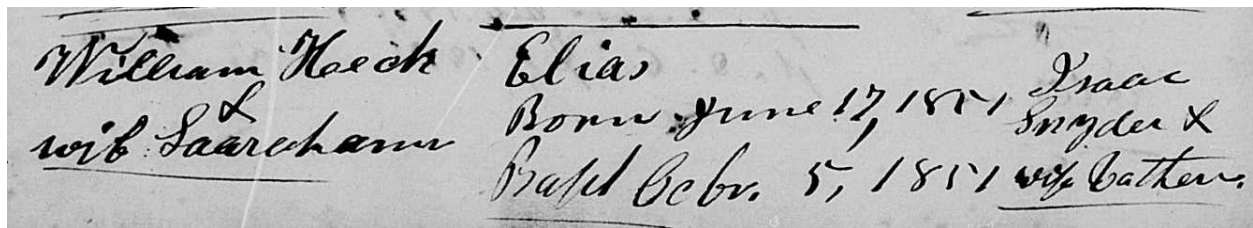 William Heck
&
wif Saarahann
Elias
Born June 17, 1851
Bapt Octbr. 5, 1851
Isaac
Snyder &
wife Cathen.